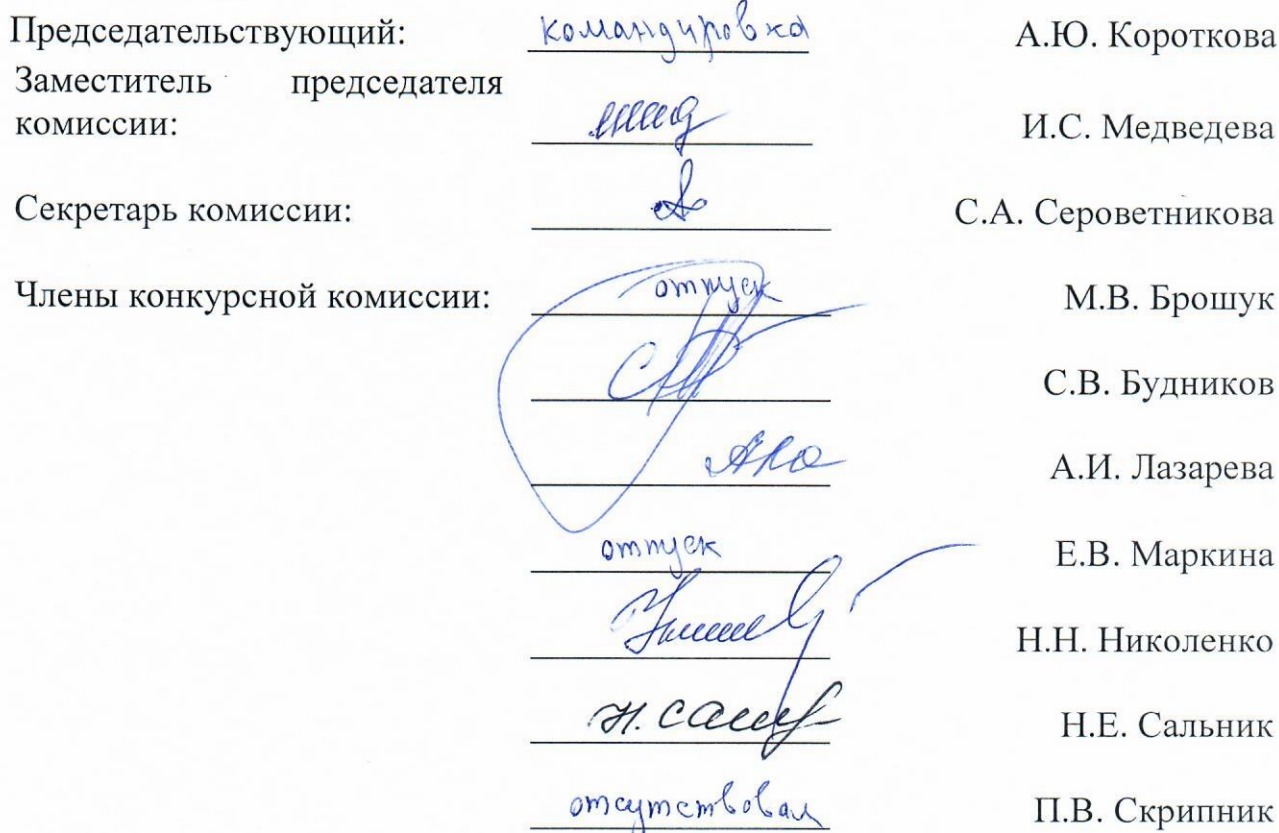 Председательствующий: командировка А.Ю. Короткова
Заместитель председателя
комиссии: И.С. Медведева
Секретарь комиссии: С.А. Сероветникова
Члены конкурсной комиссии: отпуск М.В. Брошук
С.В. Будников
А.И. Лазарева
отпуск Е.В. Маркина
Н.Н. Николенко
Н.Е. Сальник
отсутствовал П.В. Скрипник